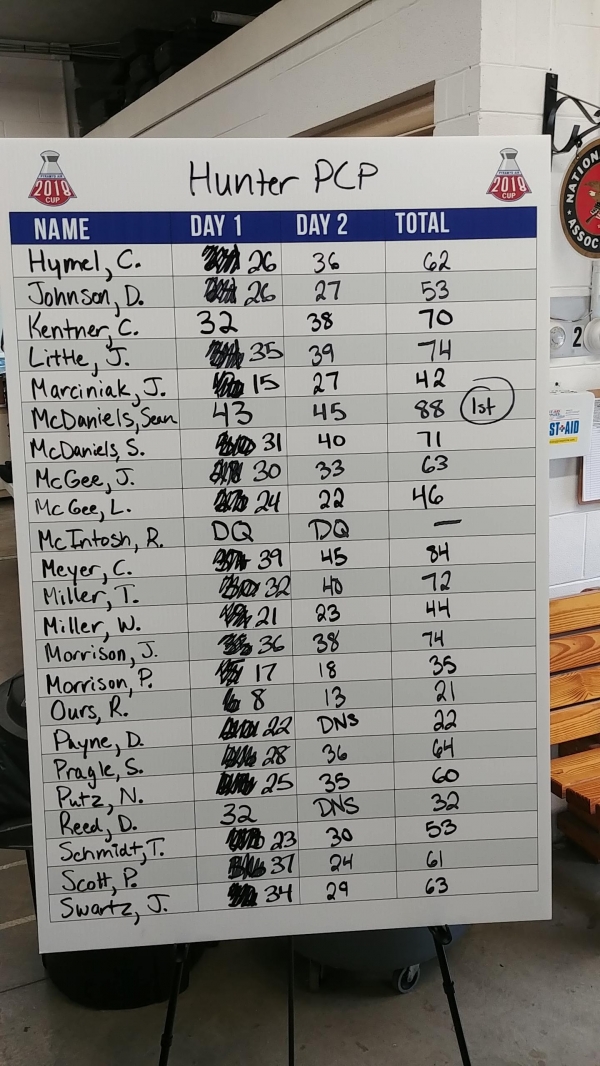 2018
CUP
Hunter PCP
2018
CUP
NAME DAY 1 DAY 2 TOTAL
Hymel, C. 26 36 62
Johnson, D. 26 27 53
Kentner, C. 32 38 70
Little, J. 35 39 74
Marciniak, J. 15 27 42
McDaniels, Sean 43 45 88 1st
McDaniels, S. 31 40 71
McGee, J. 30 33 63
McGee, L. 24 22 46
McIntosh, R. DQ DQ —
Meyer, C. 39 45 84
Miller, T. 32 40 72
Miller, W. 21 23 44
Morrison, J. 36 38 74
Morrison, P. 17 18 35
Ours, R. 8 13 21
Payne, D. 22 DNS 22
Pragle, S. 28 36 64
Putz, N. 25 35 60
Reed, D. 32 DNS 32
Schmidt, T. 23 30 53
Scott, P. 37 24 61
Swartz, J. 34 29 63
NATION
ASSOC
2
ST+AID